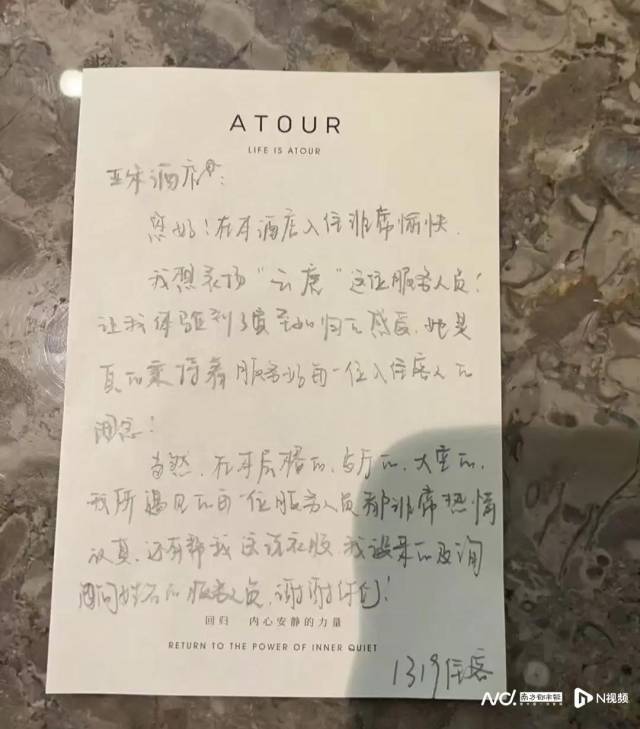 ATOUR
LIFE IS ATOUR
亚朵酒店:
您好!在本酒店入住非常愉快.
我想表扬"云鹿"这位服务人员!
让我体验到了宾至如归的感受,她是
真的秉持着服务好每一位入住客人的
理念!
当然,在本店楼的、餐厅的、大堂的,
我所遇见的每一位服务人员都非常热情
认真,还有帮我送洗衣服我没来的及询
问姓名的服务人员,谢谢你们!
回归 内心安静的力量
RETURN TO THE POWER OF INNER QUIET
1319住客
N视频